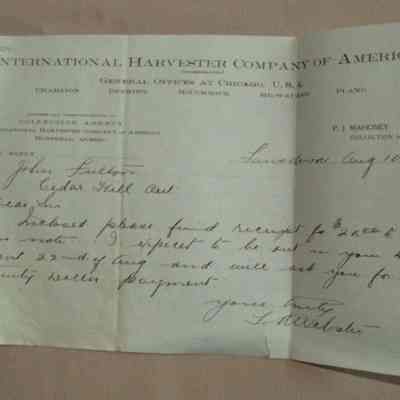 INTERNATIONAL HARVESTER COMPANY OF AMERICA
INCORPORATED
GENERAL OFFICES AT CHICAGO, U.S.A.
CHAMPION DEERING McCORMICK MILWAUKEE PLANO
COLLECTION AGENCY
INTERNATIONAL HARVESTER COMPANY OF AMERICA
MONTREAL, QUEBEC
P. J. MAHONEY
COLLECTION
Lansdowne Aug 10
John Fulton
Cedar Hill Ont
Dear Sir
Inclosed please find receipt for $20.00
note. I expect to be out in your
22nd of Aug and will ask you for
Dollar payment
yours truly
Webster